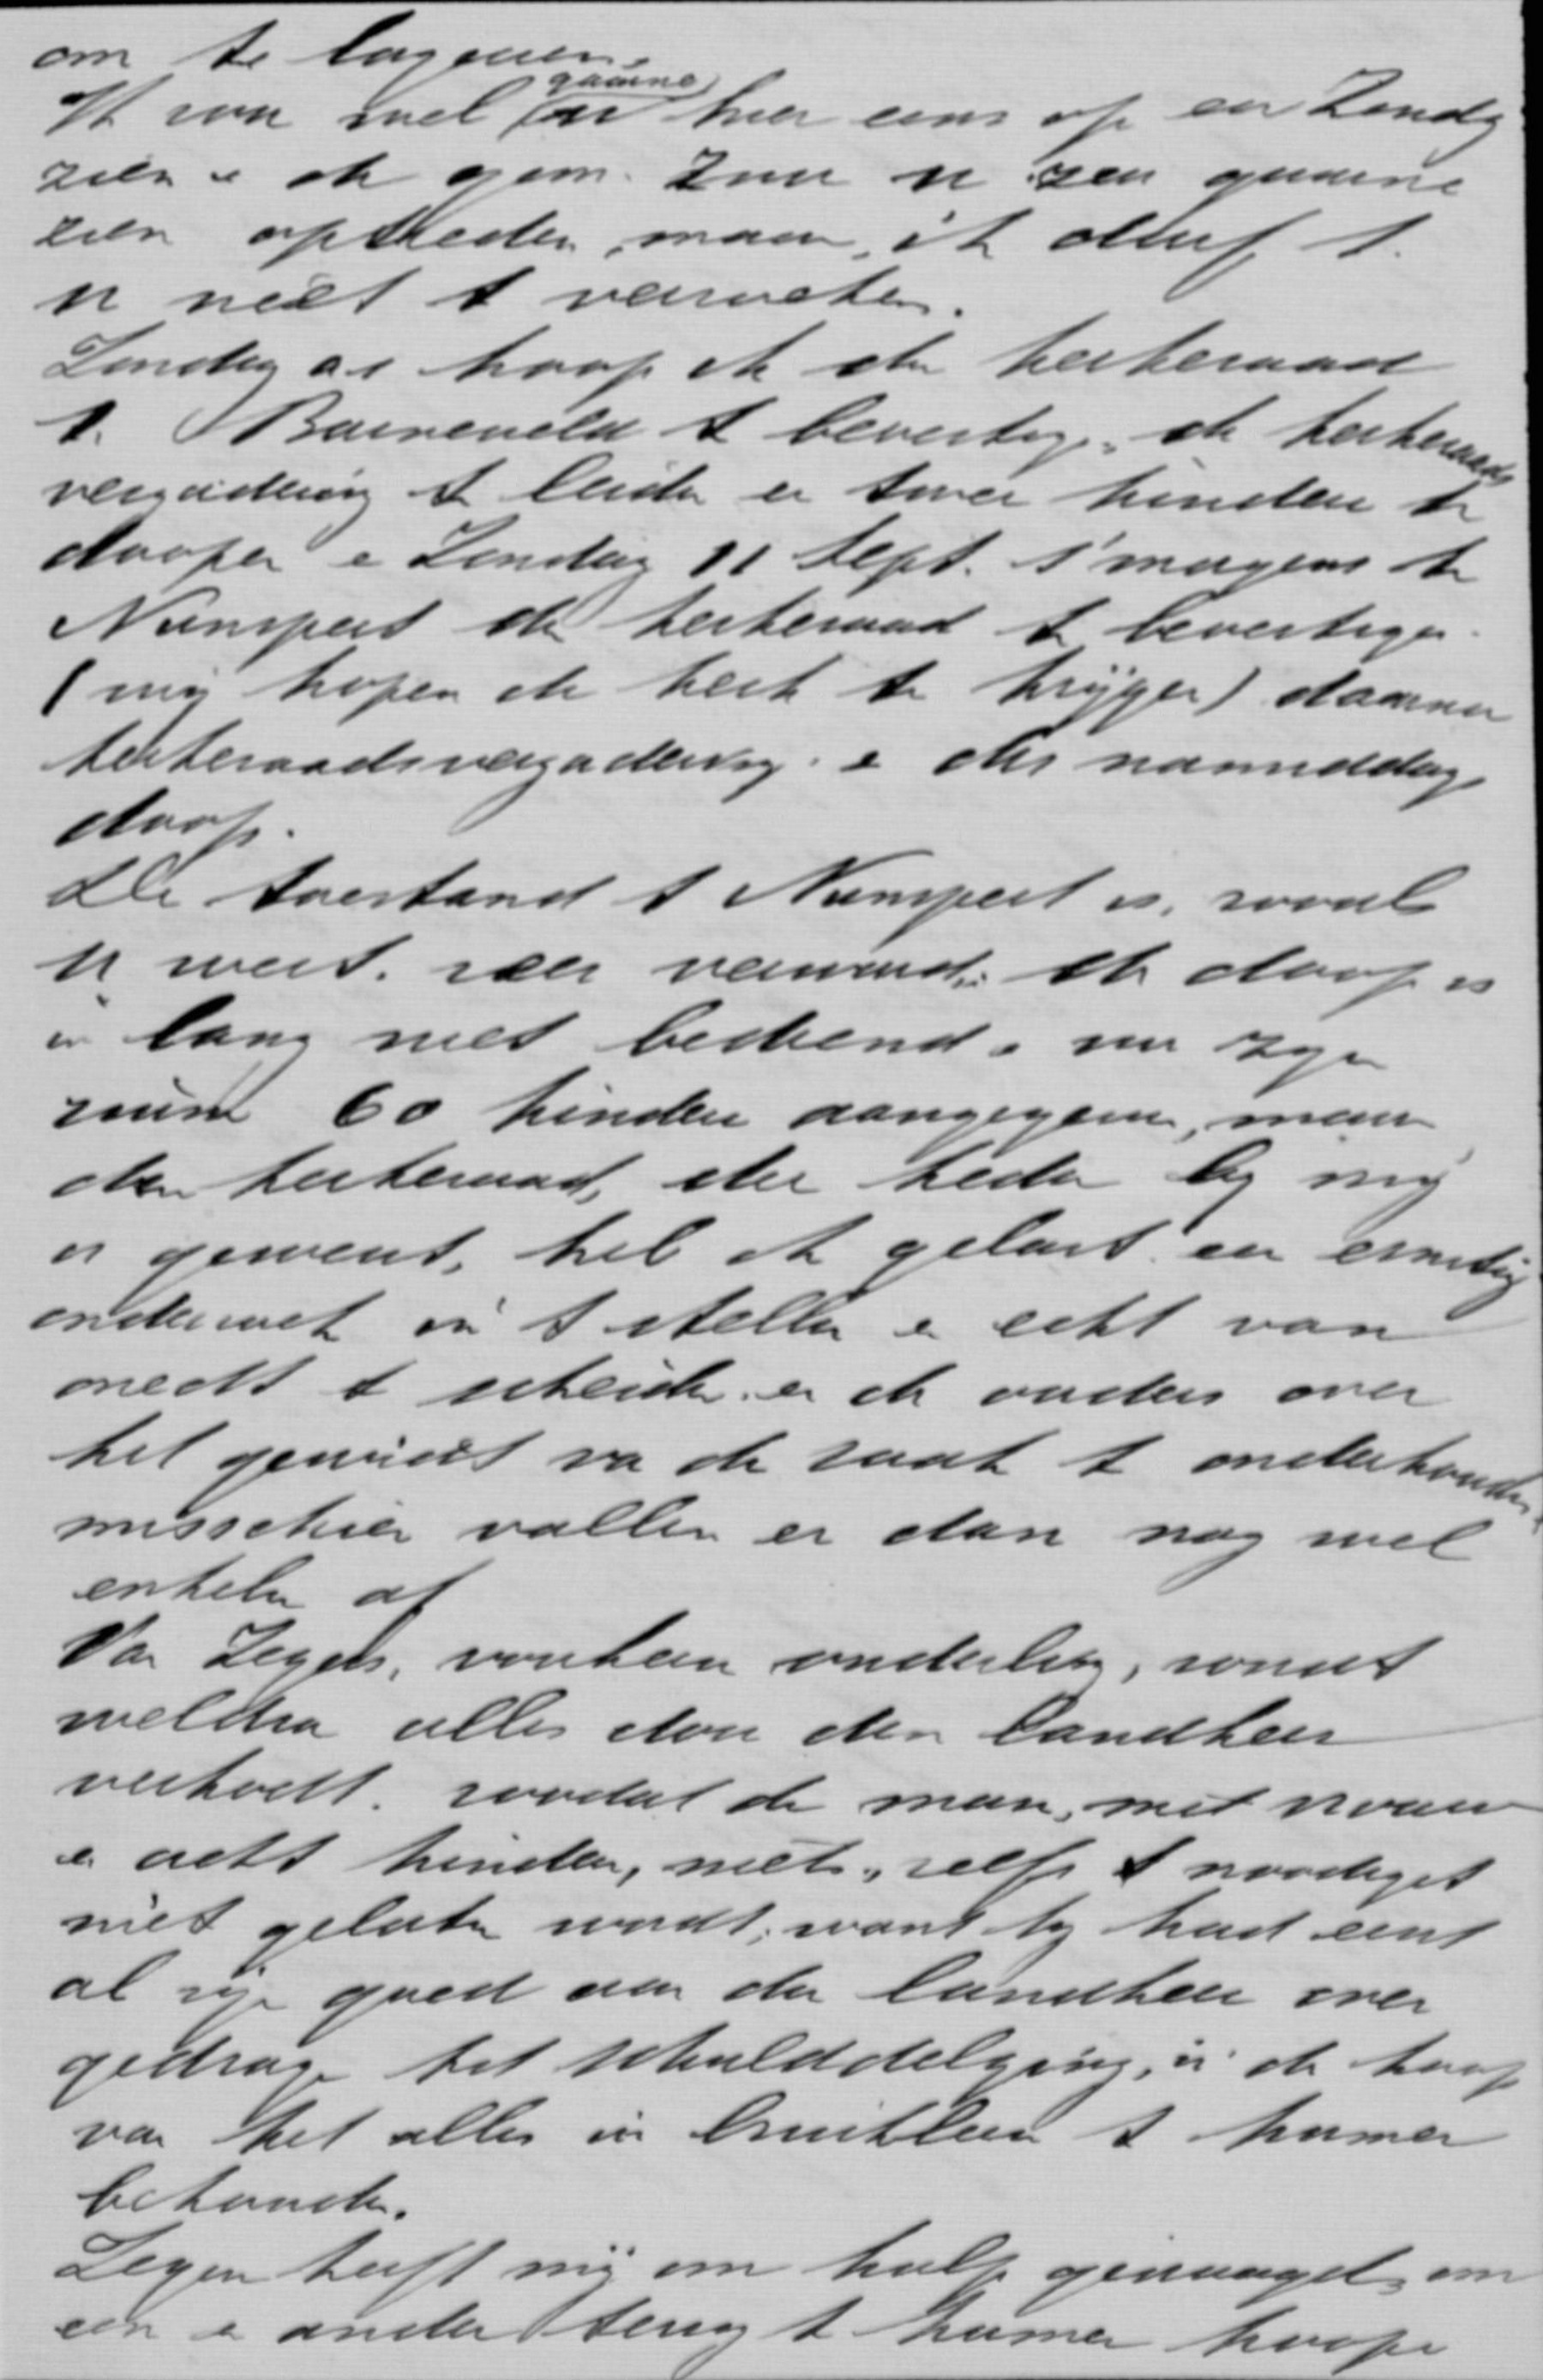 om te
Ik zou wel u gaarne hier eens op een Zondg
zien e de gem. Zou u zeer gaarne
zien optreden, maar, ik durf t.
u niet t verzoeken.
Zondag as hoop ik den kerkeraad
t. Barneveld t bevestige, de kerkeraads
vergadering te leide en twee kinderen te
doopen e Zondag 11 Sept. s'morgens te
Nunspeet den kerkeraad te bevestigen.
(wij hopen de kerk te krijgen) daarna
kerkeraadsvergadering. e des namiddags
doop.
De toestand t Nunspeet is, zooals
u weet. zeer verward. de doop is
in lang niet bediend e nu zijn
ruim 60 kinderen aangegeven, maar
den kerkeraad, die heden bij mij
is geweest, heb ik gelast een ernstig
onderzoek in t stellen e echt van
onecht t scheiden. en de ouders over
het gewicht va de zaak t onderhouden
misschien vallen er dan nog wel
enkelen af
Van Zegers, vroeker ouderling, wordt
weldra alles door den landheer
verkocht. zoodat de man, met vrouw
e acht kinderen, niets, zelfs t noodigst
niet gelaten wordt; want hij had eerst
al zijn goed aan den landheer over
gedrage tot schulddelging, in de hoop
van het alles in bruikleen t kunnen
behouden.
Zegers heeft mij om hulp gevraagd, om
een e ander terug t kunnen koopen